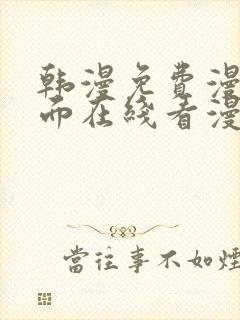 韩漫免費漫
而在綫看漫
當往事不如煙